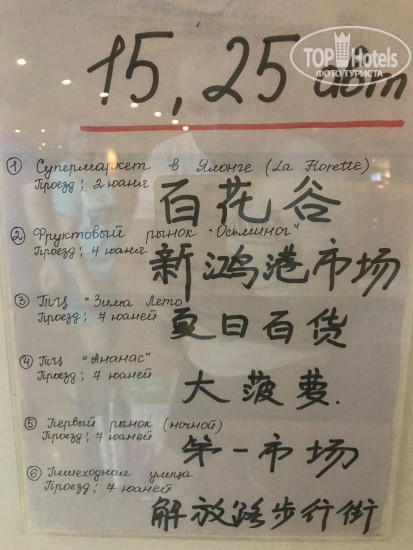 TOPHotels
ФОТО ТУРИСТА
15, 25 авт
① Супермаркет в Ялонге (La Florette)
Проезд; 2 юаня
百花谷
② Фруктовый рынок "Осьминог"
Проезд; 4 юаня
新鸿港市场
③ ТЦ "Зима Лето"
Проезд; 7 юаней
夏日百货
④ ТЦ "Ананас"
Проезд; 7 юаней
大菠萝.
⑤ Первый рынок (ночной)
Проезд; 7 юаней
第一市场
⑥ Пешеходная улица
Проезд; 7 юаней
解放路步行街